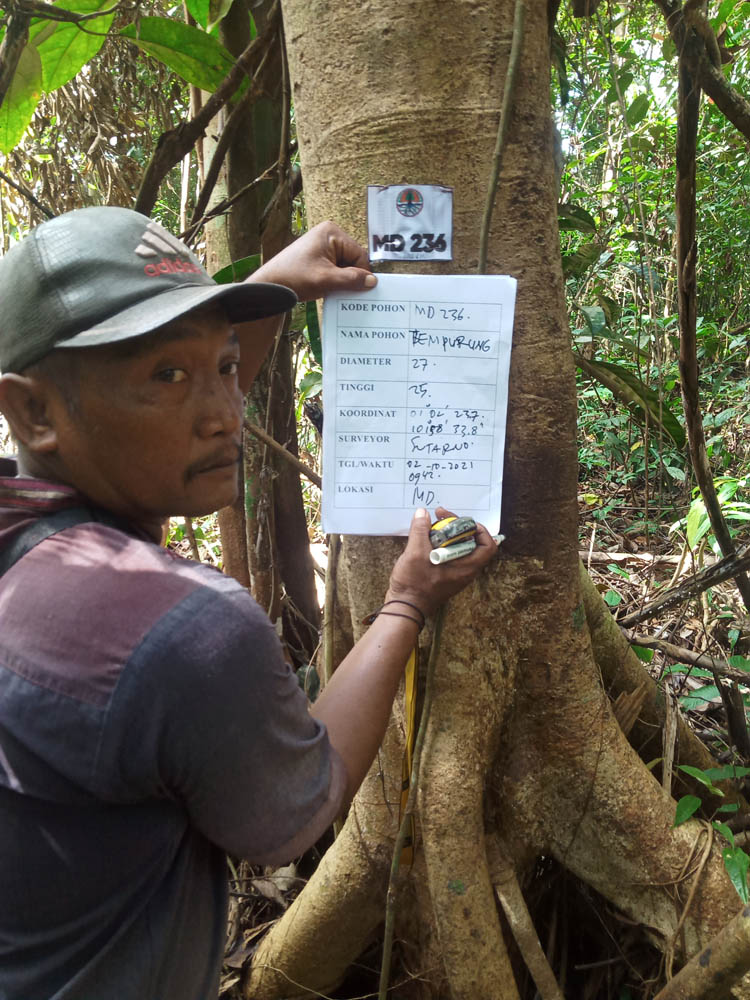 adidas
MD 236
KODE POHON MD 236.
NAMA POHON BEMPURUNG
DIAMETER 27.
TINGGI 25.
KOORDINAT 01° 02' 237.
33.8"
SURVEYOR SUTARNO.
TGL/WAKTU 02-10-2021
0942.
LOKASI MD.